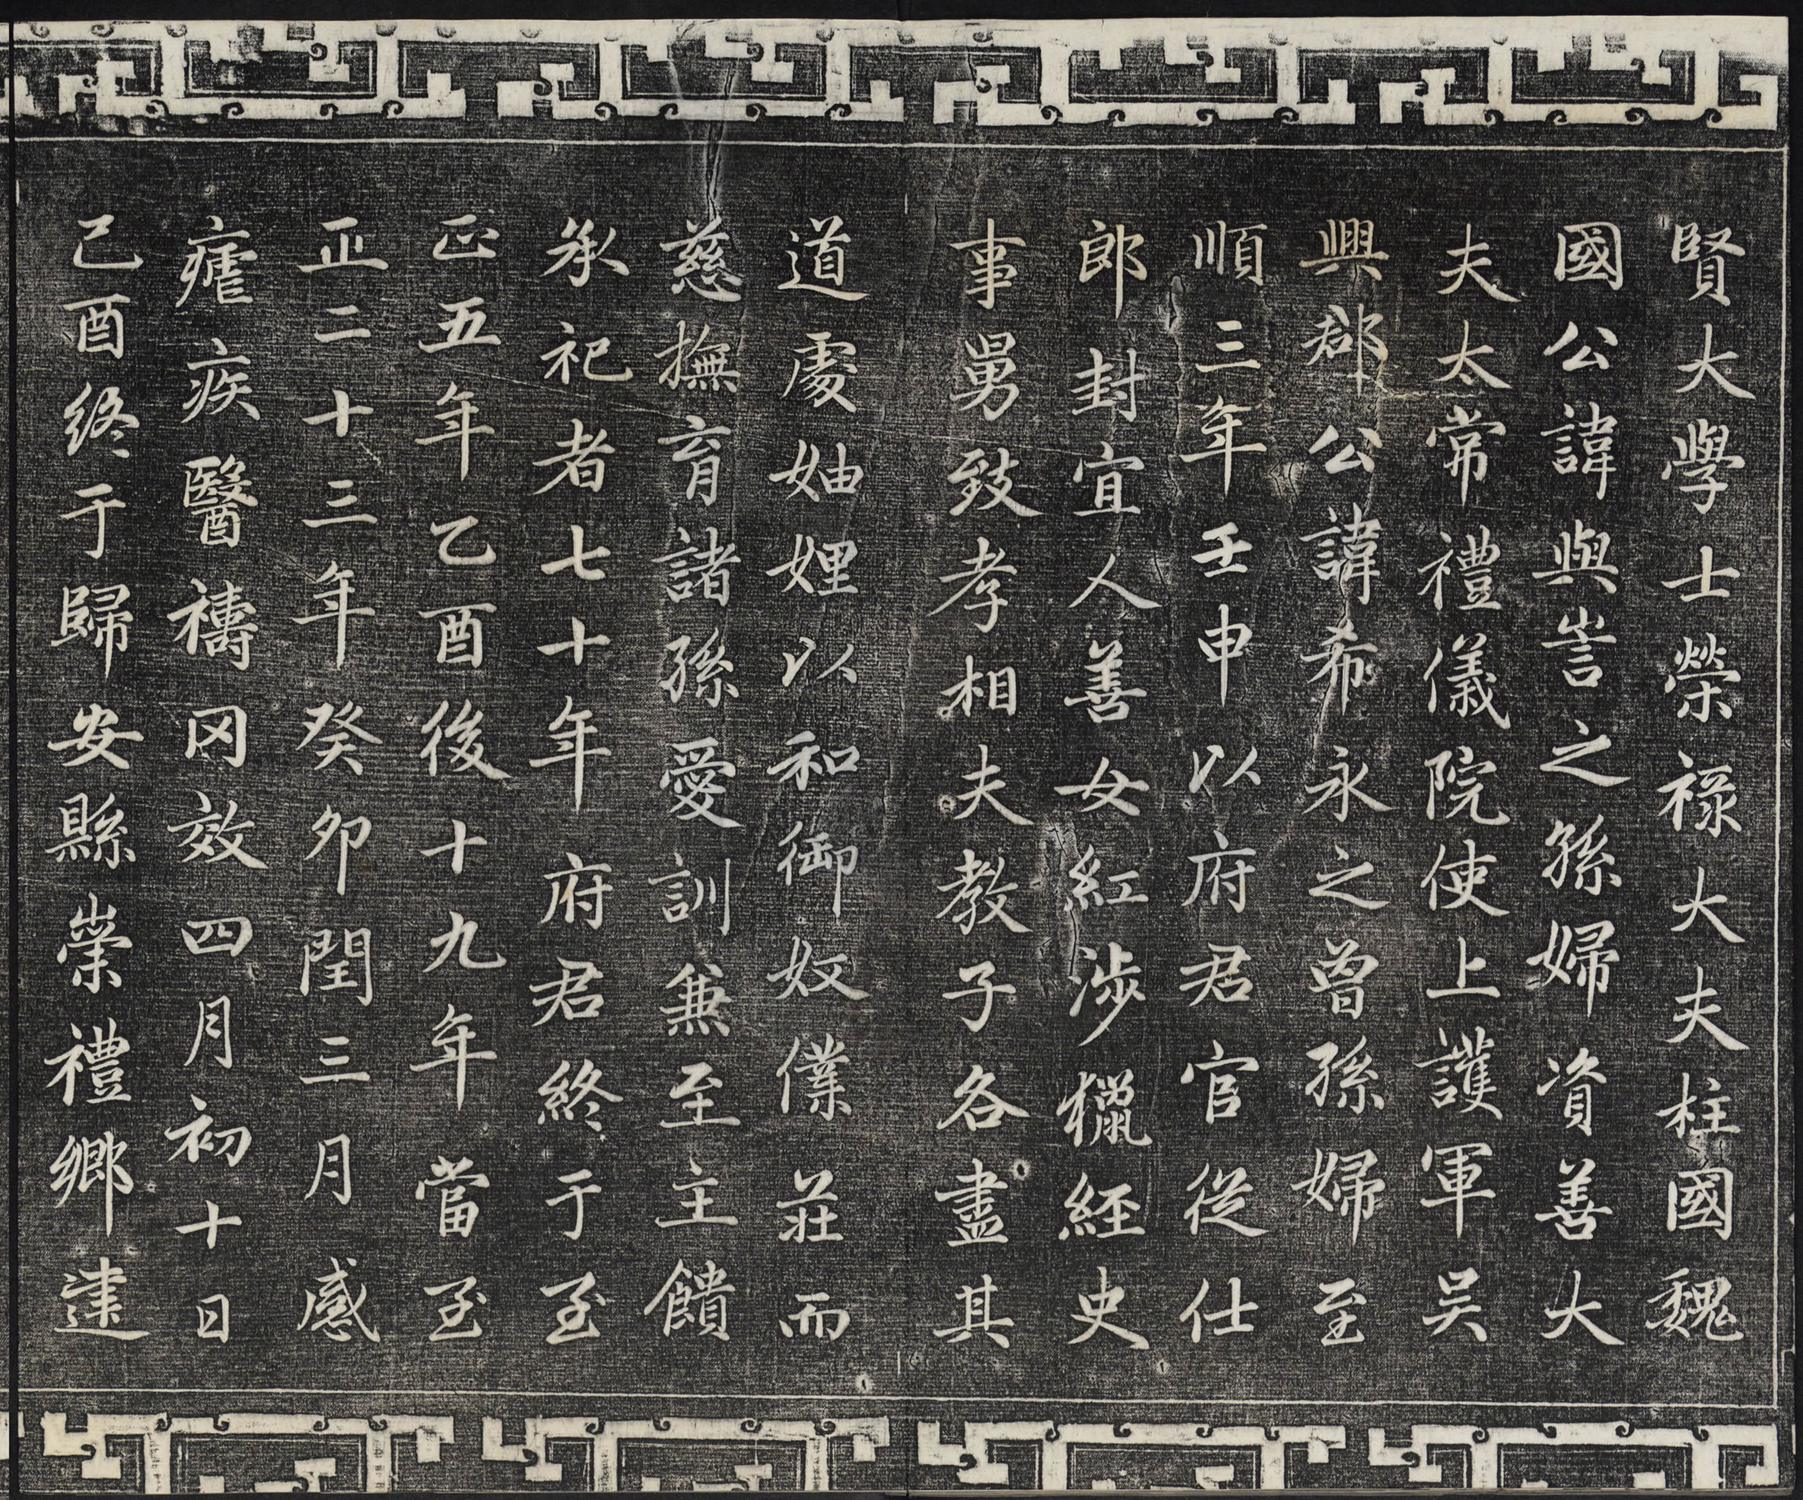 賢大學士榮祿大夫柱國魏
國公諱與訔之孫婦資善大
夫太常禮儀院使上護軍吴
興郡公諱希永之曾孫婦至
順三年壬申以府君官從仕
郎封宜人善女紅涉獵經史
事舅致孝相夫教子各盡其
道處妯娌以和御奴僕莊而
慈撫育諸孫愛訓兼至主饋
承祀者七十年府君終于至
正五年乙酉後十九年當至
正二十三年癸卯閏三月感
瘧疾醫禱罔效四月初十日
己酉終于歸安縣崇禮鄉建